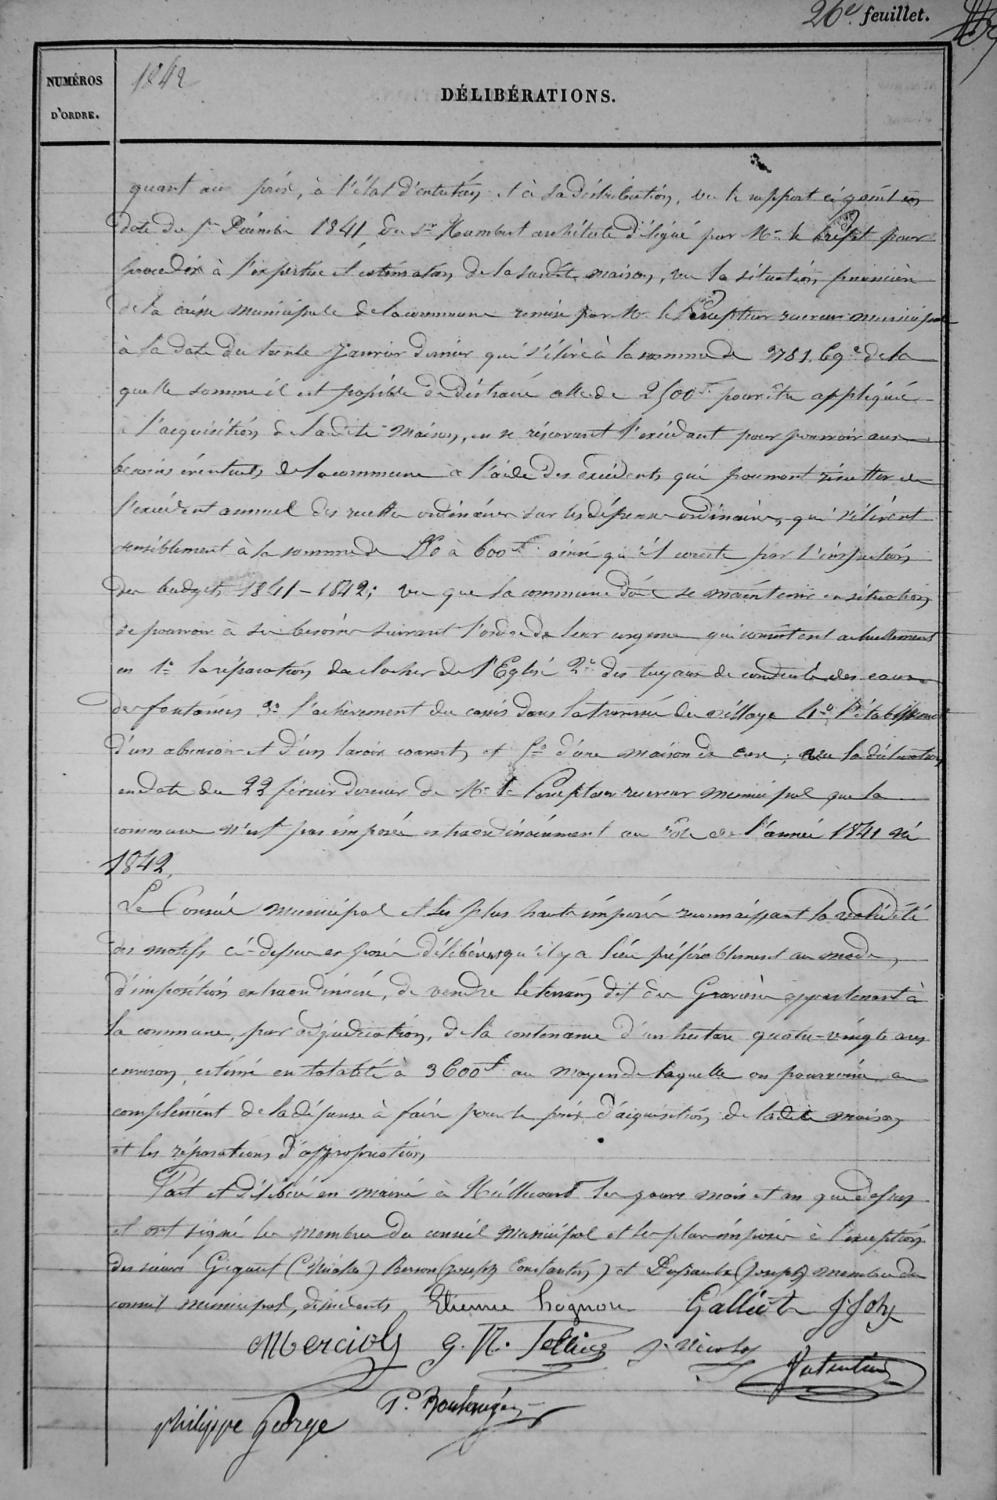 26e feuillet.
NUMÉROS
D'ORDRE.
1842
DÉLIBÉRATIONS.
quant au prix, à l'état d'entretien et à sa distribution, vu le rapport ci joint en
date du 5 Décembre 1841, du Sr Hambert architecte délégué par Mr le Préfet pour
procéder à l'expertise et estimation de la susdite maison, vu la situation financière
de la caisse municipale de la commune remise par Mr le Percepteur receveur municipal
à la date du trente Janvier dernier qui s'élève à la somme de 2781. 69c de la
quelle somme il est possible de distraire celle de 2500f pour être appliquée
à l'acquisition de la dite maison, en se réservant l'excédant pour pourvoir aux
besoins éventuels de la commune à l'aide des excédents qui pourront résulter de
l'excédent annuel des recettes ordinaires sur les dépenses ordinaires, qui s'élèvent
sensiblement à la somme de 550 à 600f ainsi qu'il conste par l'inspection
des budgets 1841-1842; vu que la commune doit se maintenir en situation
de pourvoir à ses besoins suivant l'ordre de leur urgence qui consistent actuellement
en 1o la réparation du clocher de l'Eglise 2o des tuyaux de conduite des eaux
des fontaines 3o l'achèvement du cassis dans la traversée du village 4o l'établissement
d'un abreuvoir et d'un lavoir couvert, et 5o d'une maison de cure; vu la déclaration
en date du 22 février dernier de Mr le Percepteur receveur municipal que la
commune n'est pas imposée extraordinairement au rôle de l'année 1841 ni
1842.
Le Conseil municipal et les plus hauts imposés reconnaissant la validité
des motifs ci-dessus exposés délibèrent qu'il y a lieu préférablement au mode
d'imposition extraordinaire, de vendre le terrain dit des Gravière appartenant à
la commune, par adjudication, de la contenance d'un hectare quatre-vingt ares
environ, estimé en totalité à 3600f au moyen de laquelle on pourvoira au
complément de la dépense à faire pour le prix d'acquisition de la dite maison
et les réparations d'appropriation
Fait et délibéré en mairie à les jours mois et an que dessus
et ont signé les membres du conseil municipal et les plus imposés à l'exception
des sieurs Gigout (Nicolas) (Joseph Constantin) et (Joseph) membres du
conseil municipal, dissidents Etienne hognon Galliot J Joly
Merciol g. N. Tellier J. Nicolas
Valentin
Philippe George P. Boulangé